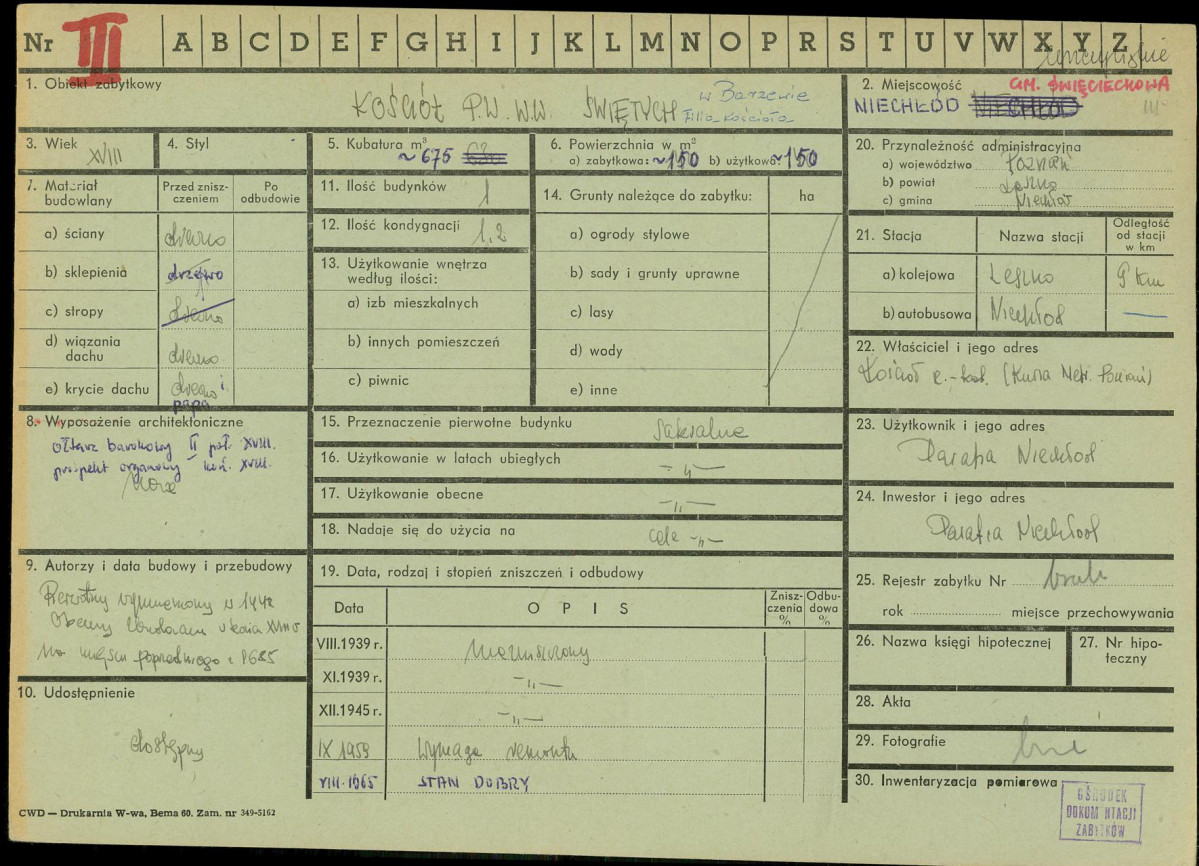 Nr III A B C D E F G H I J K L M N O P R S T U V W X Y Z
1. Obiekt zabytkowy
KOŚCIÓŁ P.W. W.W. ŚWIĘTYCH
w Barzewie
Filia kościoła
2. Miejscowość
GM. ŚWIĘCIECHOWA
NIECHŁÓD NIECHŁÓD
III
3. Wiek XVIII
4. Styl
5. Kubatura m³
~675
6. Powierzchnia w m²
a) zabytkowa: ~150 b) użytkowa ~150
20. Przynależność administracyjna
a) województwo Poznań
b) powiat Leszno
c) gmina Niechłód
7. Materiał budowlany
Przed znisz-
czeniem
Po
odbudowie
a) ściany drewno
b) sklepienia drzewo
c) stropy drewno
d) wiązania
dachu drewno
e) krycie dachu drewno i
papa
11. Ilość budynków 1
12. Ilość kondygnacji 1,2
13. Użytkowanie wnętrza
według ilości:
a) izb mieszkalnych
b) innych pomieszczeń
c) piwnic
14. Grunty należące do zabytku: ha
a) ogrody stylowe
b) sady i grunty uprawne
c) lasy
d) wody
e) inne
21. Stacja
Nazwa stacji
Odległość
od stacji
w km
a) kolejowa Leszno 9 km
b) autobusowa Niechłód —
22. Właściciel i jego adres
Kościół r.-kat. (Kuria Metr. Poznań)
8. Wyposażenie architektoniczne
ołtarz barokowy II poł. XVIII.
prospekt organowy kon. XVIII.
15. Przeznaczenie pierwotne budynku sakralne
16. Użytkowanie w latach ubiegłych —„—
17. Użytkowanie obecne —„—
18. Nadaje się do użycia na cele —„—
23. Użytkownik i jego adres
Parafia Niechłód
24. Inwestor i jego adres
Parafia Niechłód
9. Autorzy i data budowy i przebudowy
Pierwotny wymieniony w 1442
Obecny zbudowany w końcu XVIII w
na miejscu poprzedniego z 1685
10. Udostępnienie
dostępny
19. Data, rodzaj i stopień zniszczeń i odbudowy
Data
O P I S
Znisz-
czenia
%
Odbu-
dowa
%
VIII.1939 r. nieniszczony
XI.1939 r. —„—
XII.1945 r. —„—
IX 1959 wymaga remontu
VIII.1965 STAN DOBRY
25. Rejestr zabytku Nr brak
rok miejsce przechowywania
26. Nazwa księgi hipotecznej
27. Nr hipo-
teczny
28. Akta
29. Fotografie brak
30. Inwentaryzacja pomiarowa
OŚRODEK
DOKUM NTACJI
ZABYTKÓW
CWD — Drukarnia W-wa, Bema 60. Zam. nr 349-5162